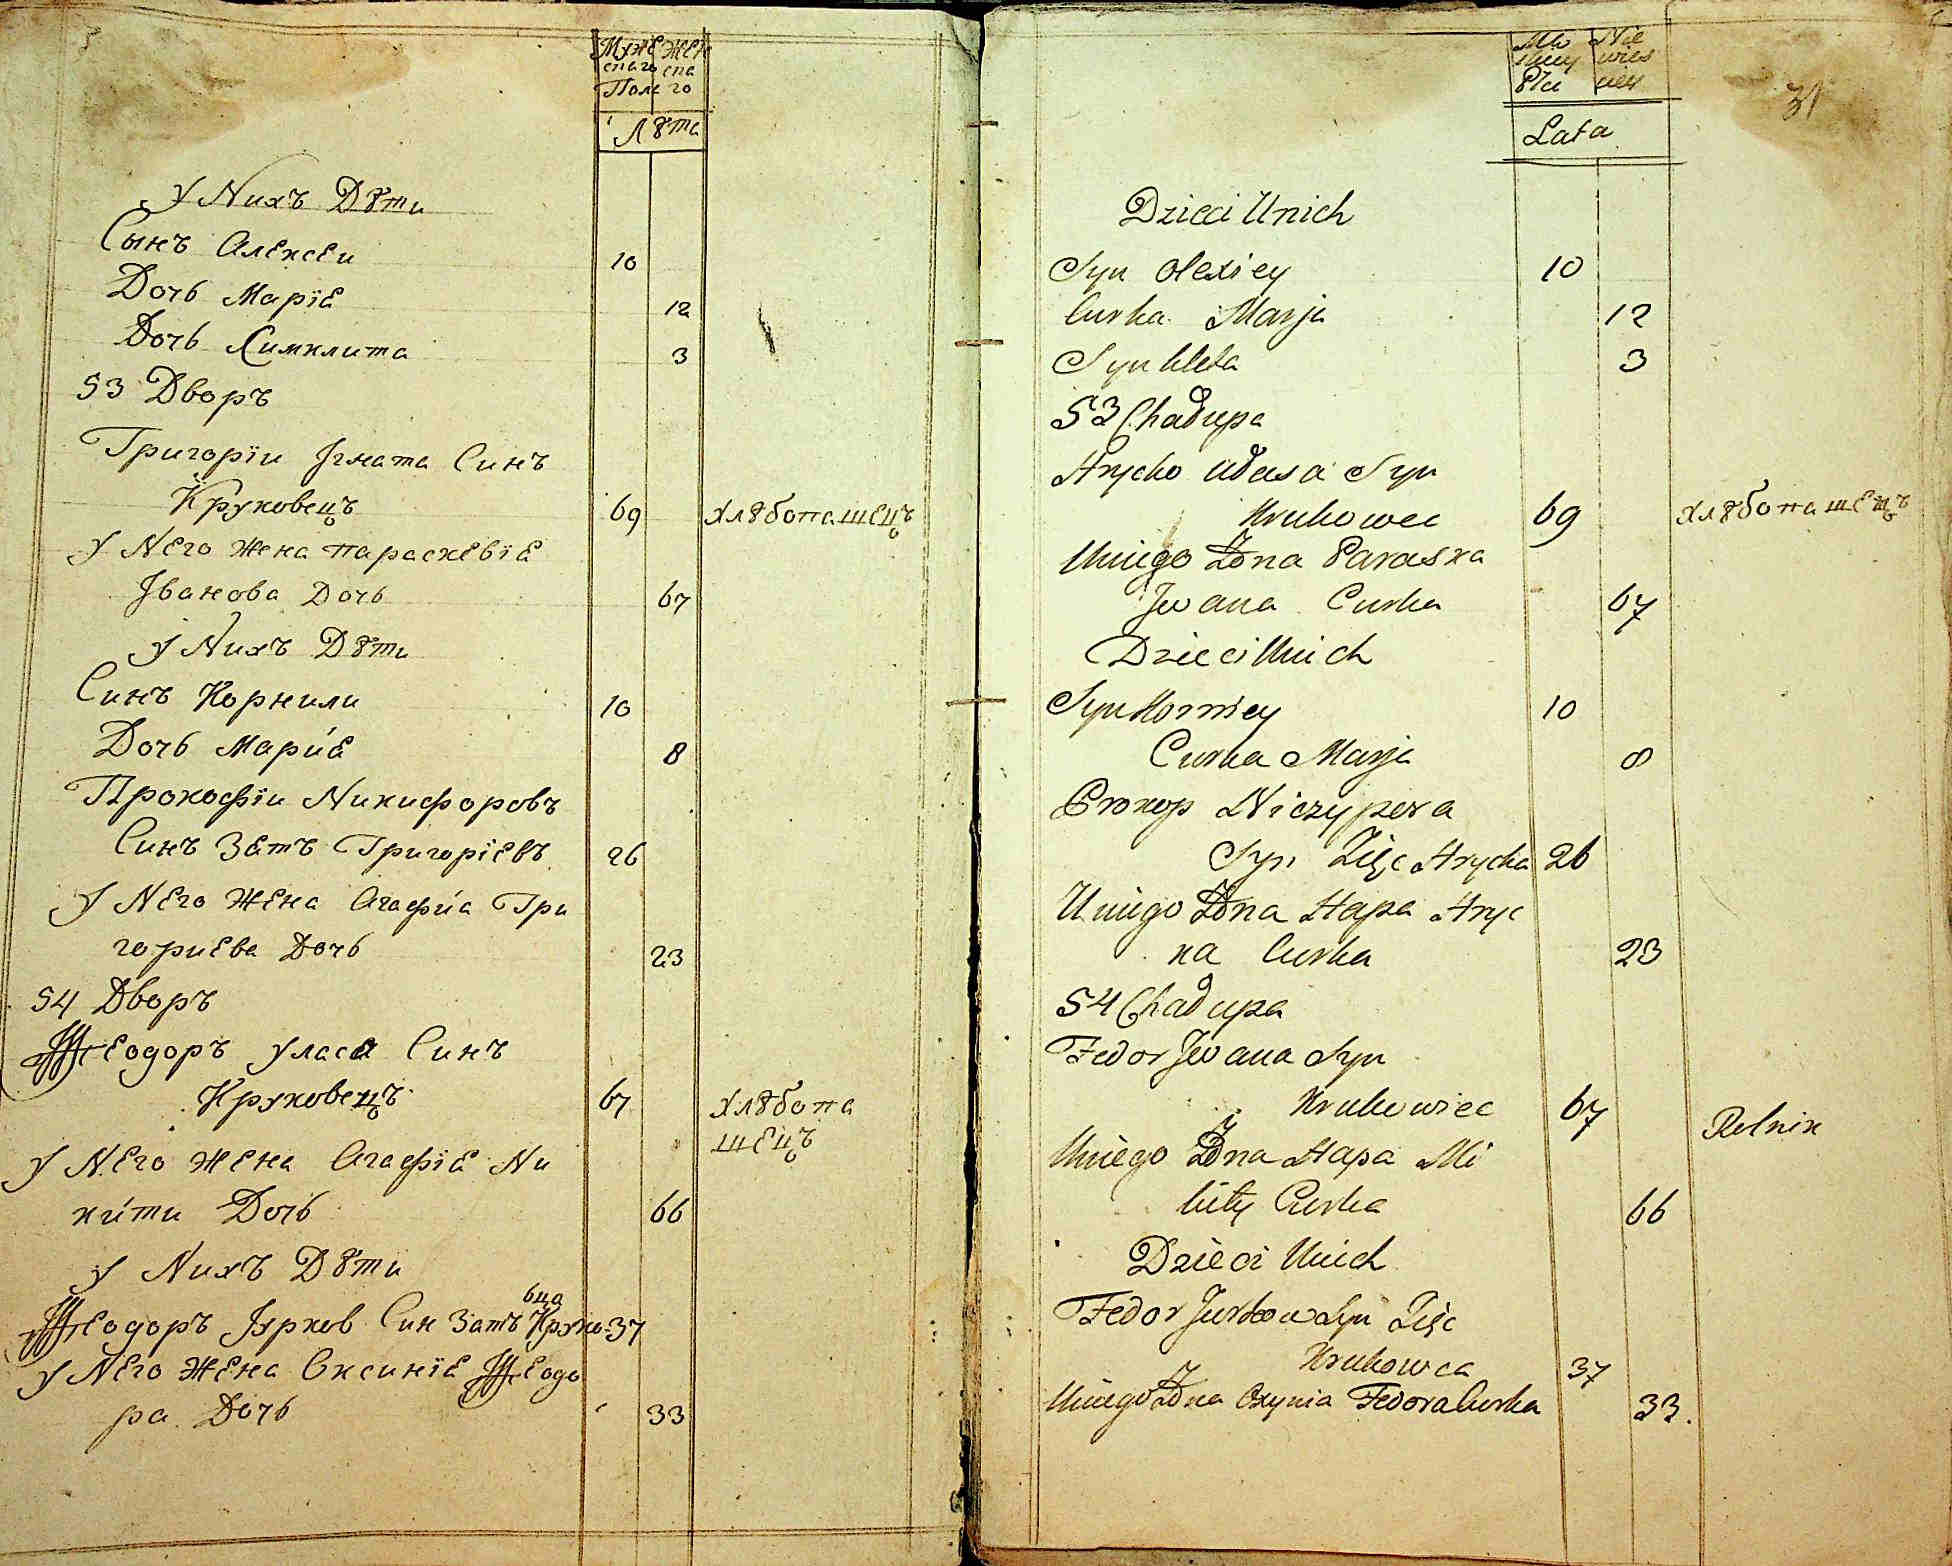 Мужескаго Женскаго
Пола
Лѣта
У Нихъ Дѣти
Сынъ Алексеи 10
Дочь Марїе 12
Дочь Симклита 3
53 Дворъ
Григорїи Игната Синъ
Круковецъ 69 Хлѣбопашецъ
У Него Жена параскевїе
Іванова Дочь 67
У Нихъ Дѣти
Синъ Корнили 10
Дочь Маріе 8
Прокофїи Никифоровъ
Синъ Зать Григорїевъ 26
У Него Жена Агафіа Гри
гориева Дочь 23
54 Дворъ
Феодоръ Уласа Синъ
Круковецъ 67 Хлѣбопа
шецъ
У Него Жена Агафїе Ни
кити Дочь 66
У Нихъ Дѣти
Феодоръ Юрков Син Зать Круковца 37
У Него Жена Оксинїе Феодо
ра Дочь 33
31
Męskiey Niewiesciey
Płci
Lata
Dzieci Unich
Syn Olexiey 10
Curka Marja 12
Synkleta 3
53 Chadupa
Hrycko Syn
Krukowec 69 Хлѣбопашецъ
Uniego Żona Paraska
Jwana Curka 67
Dzieci Unich
Syn Korniey 10
Curka Marja 8
Prokop Niczypera
Syn Zięc Hrycka 26
Uniego Żona Hapa Hryc
ka Curka 23
54 Chadupa
Fedor Jwana Syn
Krukowiec 67 Rolnik
Uniego Żona Hapa Mi
kity Curka 66
Dzieci Unich
Fedor Jurkow Syn Zięc
Krukowca 37
Uniego Żona Oxynia Fedora Curka 33.